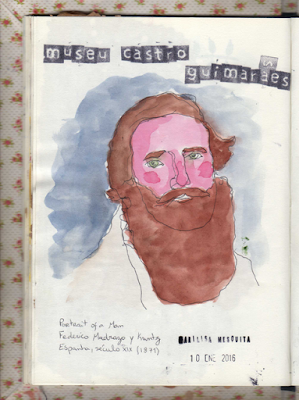 museu castro
guimarães
Portrait of a Man
Federico Madrazo y Kuntz
Espanha, século XIX (1875)
MARILISA MESQUITA
10. ENE 2016